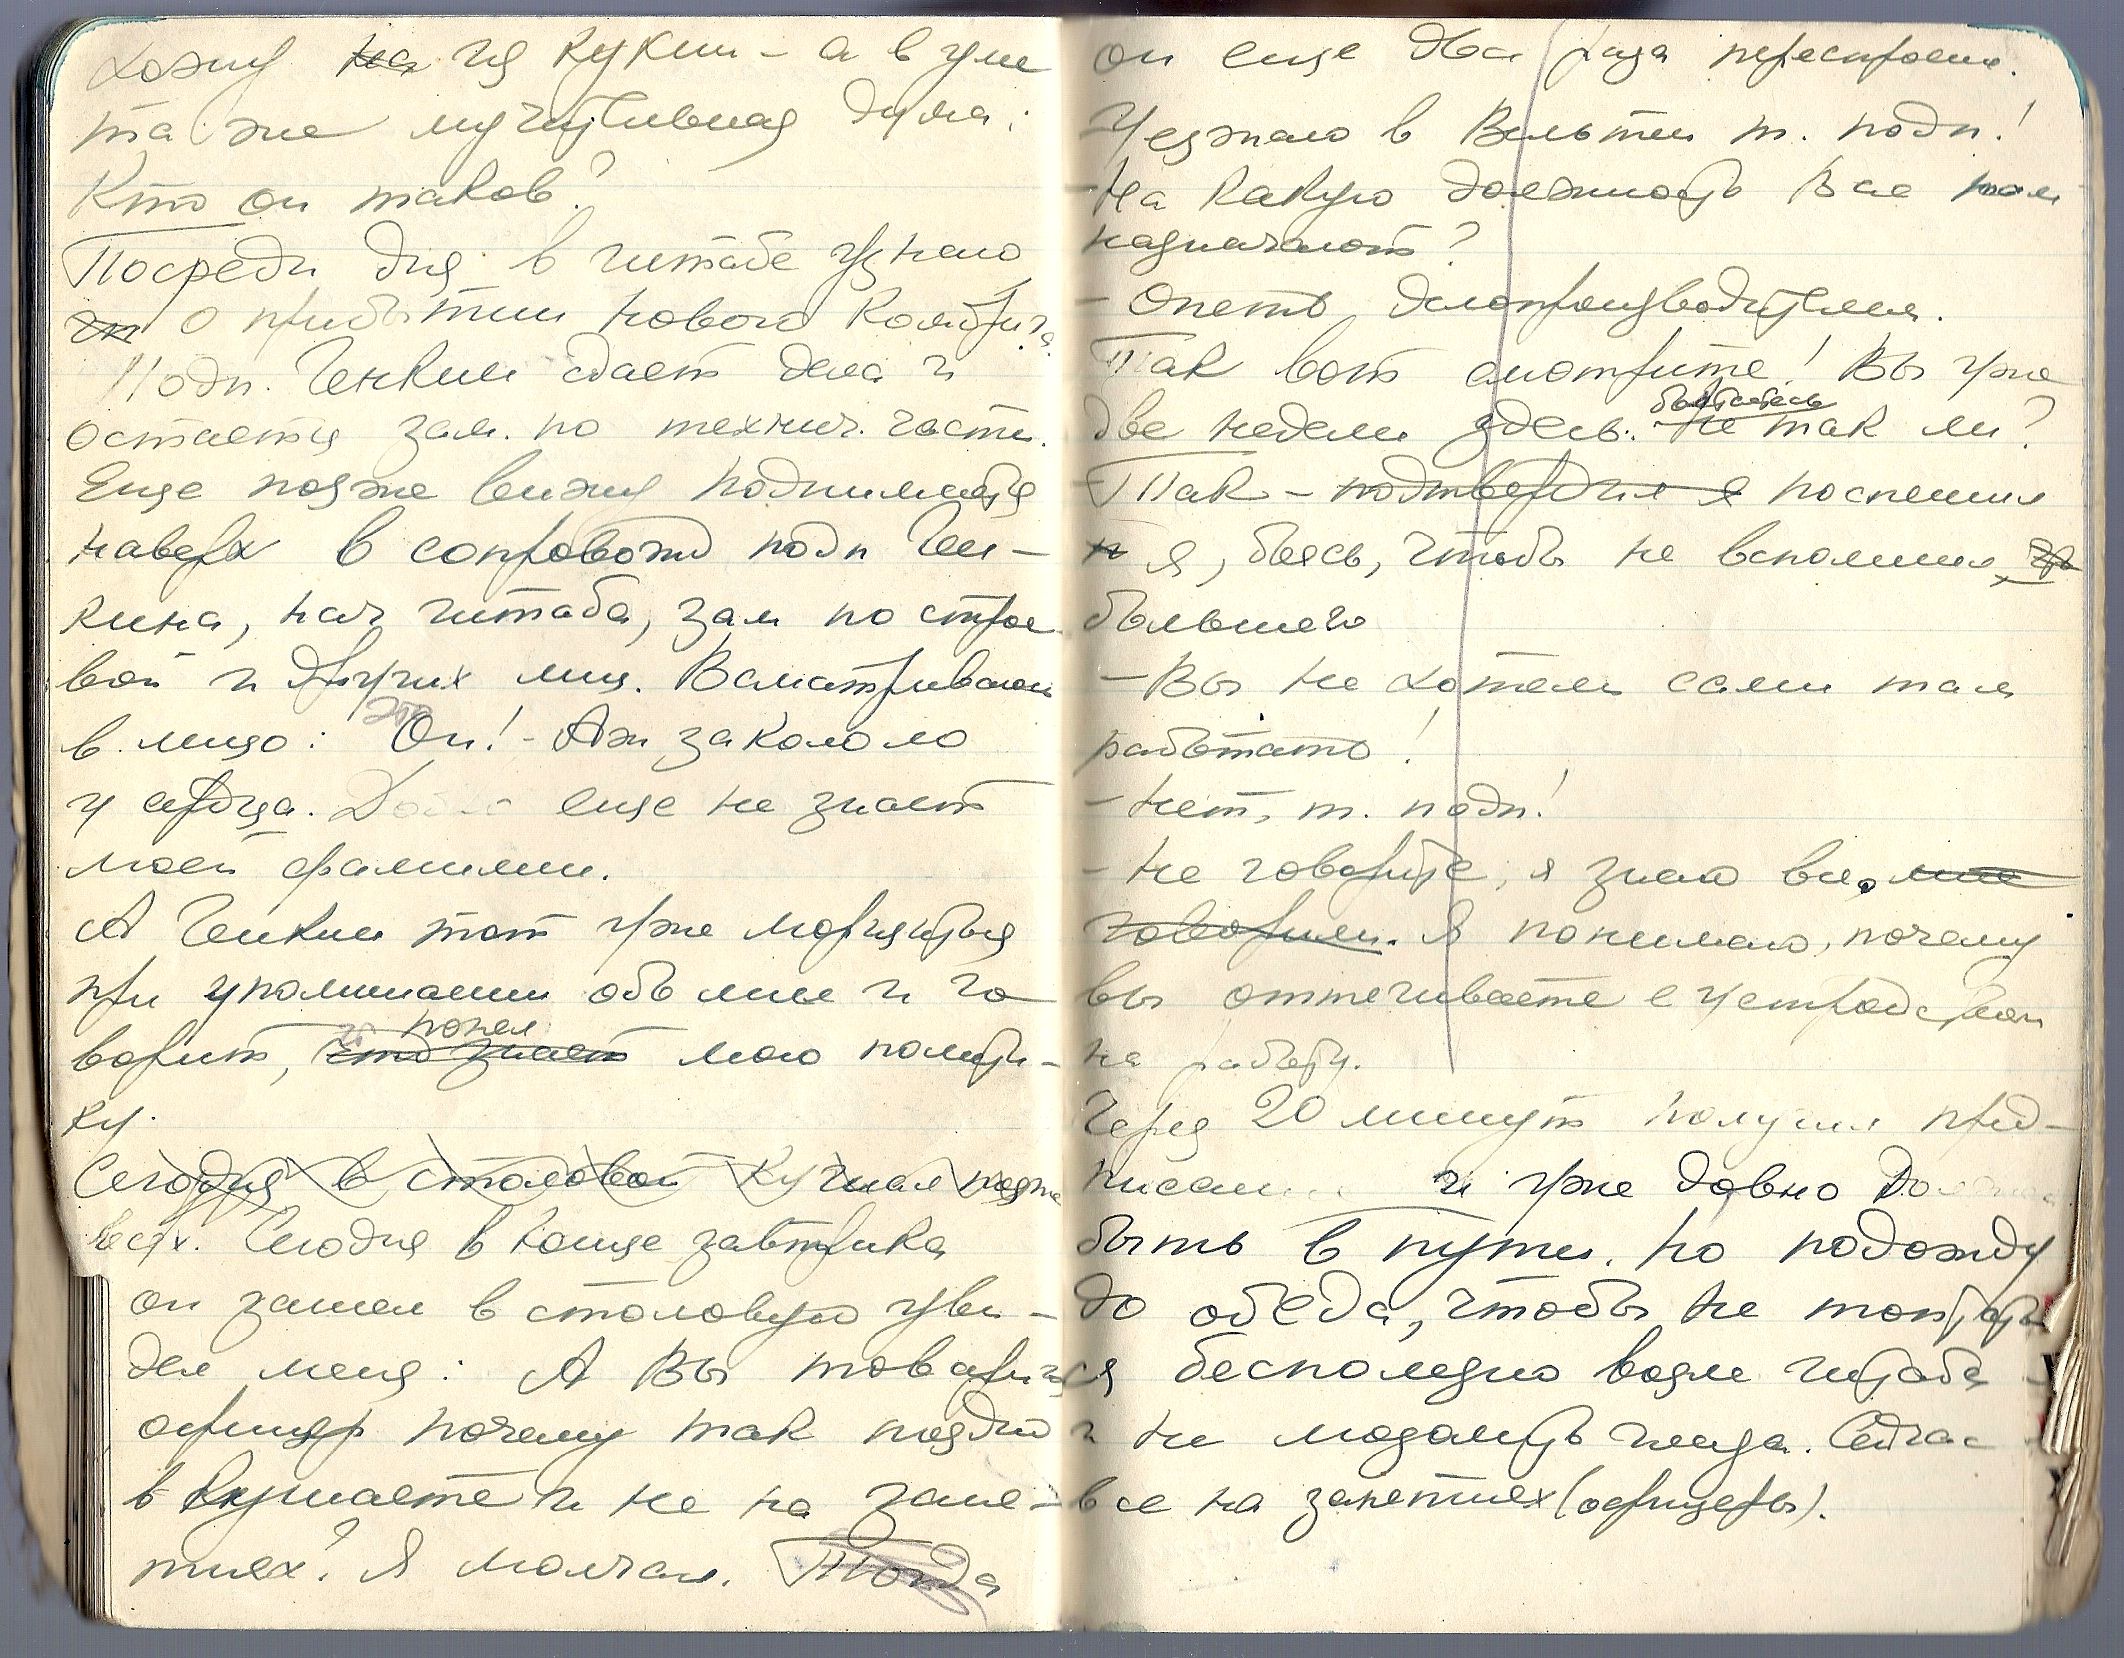 хожу на из кухни – а в уме
та же мучительная дума:
Кто он таков?
Посреди дня в штабе узнаю
о прибытии нового комбрига.
Подп. Генкин сдает дела и
остается зам. по технич. части.
Еще позже вижу поднимается
наверх в сопровожд подп Ген-
кина, нач штаба, зам по строе
вой и других лиц. Всматриваюсь
в лицо: Это Он! – Аж закололо
у сердца. еще не знает
моей фамилии.
А Генкин тот уже морщится
при упоминании обо мне и го
ворит, что знает понял мою полити-
ку.
Сегодня в столовой кушал позже
всех. Сегодня в конце завтрака
он зашел в столовую уви-
дел меня: А Вы товарищ
офицер почему так поздно
в кушаете и не на заня-
тиях? Я молчал. Тогда
он еще два раза переспросил.
– Уезжаю в т. подп!
– На какую должность Вас там
назначают?
– Опеть делопроизводителем.
Так вот смотрите! Вы уже
две недели здесь. болтаетесь не так ли?
– Так – подтвердил я поспешил
н я, боясь, чтобы не вспомнил,
большего
– Вы не хотели сами там
работать!
– Нет, т. подп!
– Не говорите, я знаю все, мне
говорили. Я понимаю, почему
вы оттягиваете с устройством
на работу.
Через 20 минут получил пред-
писание и уже давно должен
быть в пути. Но подожду
до обеда, чтобы не топтать
ся бесполезно возле штаба
и не мозолить глаза. Сейчас
все на занетиях (офицеры).